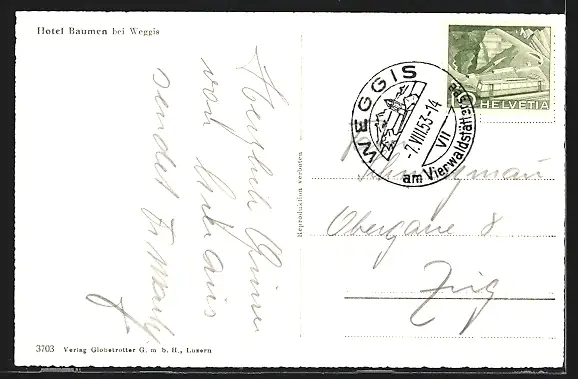 Hotel Baumen bei Weggis
Herzliche Grüsse
von
sendet Fr.
Reproduktion verboten
WEGGIS
am Vierwaldstättersee
-7.VIII.53-14
VII
HELVETIA
Obergasse 8
Zug
3703 Verlag Globetrotter G. m. b. H., Luzern